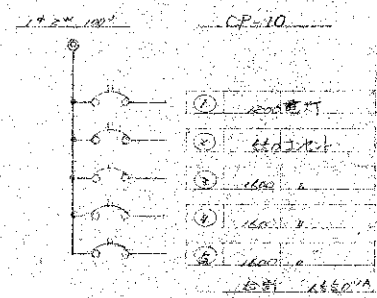 1φ2W 100V
CP-10
① 1200 電灯
② コンセント
③ 1600 〃
④ 1600 〃
⑤ 1600 〃
合計 VA